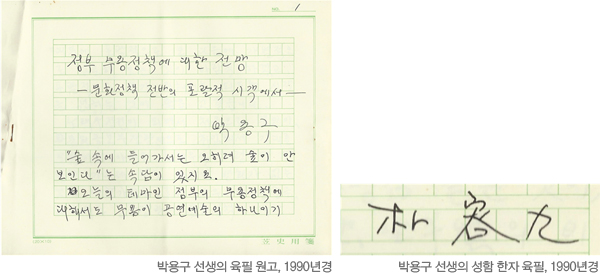 1
정부 무용정책에 대한 전망
—문화정책 전반의 포괄적 시각에서—
박용구
"숲 속에 들어가서는 오히려 숲이 안
보인다"는 속담이 있지요.
오늘의 테마인 정부의 무용정책에
대해서도 무용이 공연예술의 하나이기
박용구 선생의 육필 원고, 1990년경
朴容九
박용구 선생의 성함 한자 육필, 1990년경